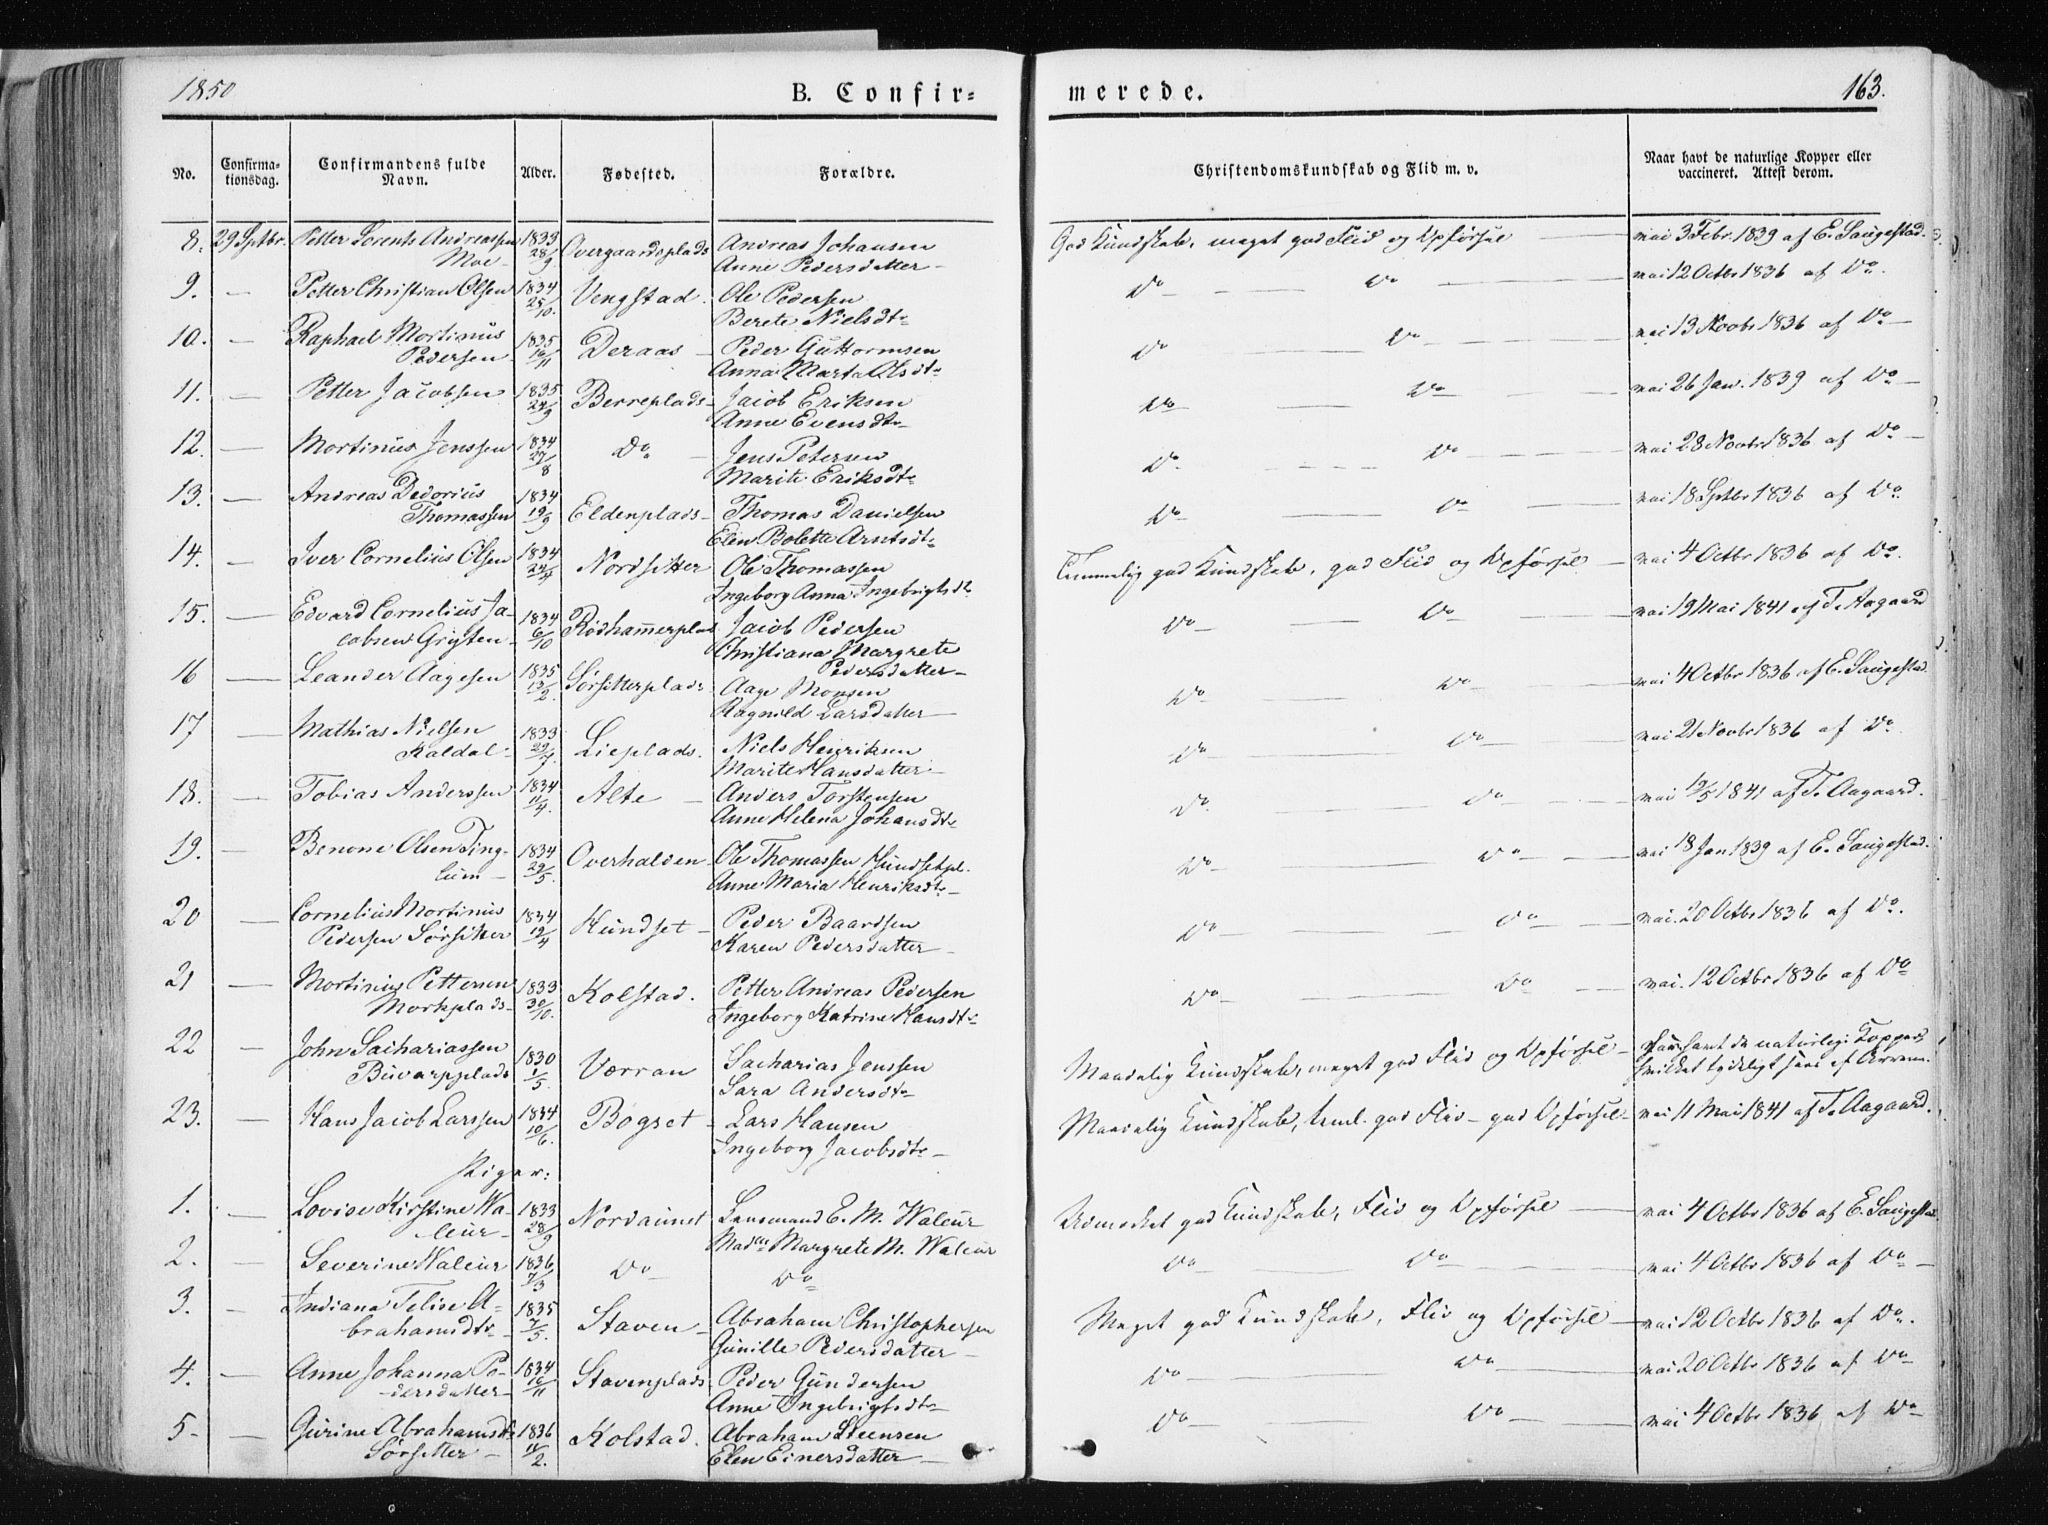 1850 B. Confir= merede. 163.
No. Confirma-tionsdag. Confirmandens fulde Navn. Alder. Fødested. Forældre. Christendomskundskab og Flid m. v. Naar havt de naturlige Kopper eller vaccineret. Attest derom.
8. 29 Sptbr. Petter Lorents Andreassen 1833 Overgaardsplads Andreas Johansen God Kundskab, meget god Flid og Opførsel — 3 Febr. 1839 af E. Saugestad.
Moe - 28/9 Anne Pedersdatter -
9. — Petter Christian Olsen 1834 Vengstad. Ole Pedersen Do — Do — 12 Octbr 1836 af Do.
25/10. Berete Nielsdtr
10. — Raphael Mortinus 1835 Deraas - Peder Guttormsen Do — Do — 13 Novbr 1836 af Do —
Pedersen 16/11 Anna Marta Olsdtr
11. — Petter Jacobsen 1835 Berreplads - Jacob Eriksen Do — Do — 26 Jan. 1839 af Do —
24/9 Anne Evensdtr
12. — Mortinus Jenssen 1834 Do - Jens Petersen Do — Do — 28 Novbr 1836 af Do —
27/8 Marite Eriksdtr
13. — Andreas Dedorius 1834 Eldenplads - Thomas Danielsen Do — Do — 18 Sptbr 1836 af Do.
Thomassen 19/9 Elen Bolette Arntsdtr
14. — Iver Cornelius Olsen 1834 Nordsetter Ole Thomassen Temmelig god Kundskab, god Flid og Opførsel — 4 Octbr 1836 af Do.
24/4 Ingeborg Anna Ingebrigtsdtr
15. — Edvard Cornelius Ja- 1834 Rødhammerplad Jacob Pedersen Do — Do — 19 Mai 1841 af T. Aagaard
cobsen Grøten - 6/10 Christiana Margrete
16 — Leander Aagesen 1835 Sørsetterplads Pedersdatter -
13/2 Aage Monsen Do — Do — 4 Octbr 1836 af E. Saugestad
Ragnild Larsdatter —
17 — Mathias Nielsen 1833 Lieplads. Niels Henriksen Do — Do — 21 Novbr 1836 af Do
Kaldal - Marite Hansdatter -
18. — Tobias Anderssen 1834 Alte - Anders Torstensen Do. — Do — 19/5 1841 af T. Aagaard.
11/4. Anne Helena Johansdtr
19. — Benone Olsen Ting- 1834 Overhalden - Ole Thomassen Hundsetpl. Do — Do — 18 Jan 1839 af E. Saugestad.
lum - 29/5. Anne Maria Henriksdtr -
20 — Cornelius Mortinus 1834 Hundset - Peder Baardsen Do — Do — 20 Octbr 1836 af Do.
Pedersen Sørsetter 19/4 Karen Pedersdatter -
21 — Mortinus Pettersen 1833 Kolstad. Petter Andreas Pedersen Do — Do — 12 Octbr 1836 af Do
Morkplads - 30/10. Ingeborg Katrine Hansdtr
22 — John Sachariassen 1830 Værran Sacharias Jenssen Maadelig Kundskab, meget god Flid og Opførsel - Har havt de naturlige Kopper,
Buvarpplads 1/5. Sara Andersdtr hvilket tydeligt sees af Arrene.
23. — Hans Jacob Larssen 1834 Bogset - Lars Hansen Maadelig Kundskab, teml. god Flid - god Opførsel - 11 Mai 1841 af T. Aagaard.
10/6. Ingeborg Jacobsdtr -
Piger:
1. — Lovise Kirstine Wa- 1833 Nordaunet Lensmand E. M. Waleur Udmerket god Kundskab, Flid og Opførsel — 4 Octbr 1836 af E. Saugestad.
leur - 28/9 Madme Margrete M. Waleur
2. — Severine Waleur 1836 Do Do Do — Do — 4 Octbr 1836 af Do —
7/3
3. — Indiana Felise A- 1835 Staven - Abraham Christophersen Meget god Kundskab, Flid og Opførsel — 12 Octbr 1836 af Do.
brahamsdtr - 7/5. Gunille Pedersdatter -
4. — Anne Johanna Pe- 1834 Stavenplads Peder Gundersen Do — Do — 20 Octbr 1836 af Do —
dersdatter - 16/11 Anne Ingebrigtsdtr
5 - — Gurine Abrahamsdtr 1836 Kolstad. Abraham Steensen Do — Do — 4 Octbr 1836 af Do
Sørsetter - 11/2. Elen Einersdatter -